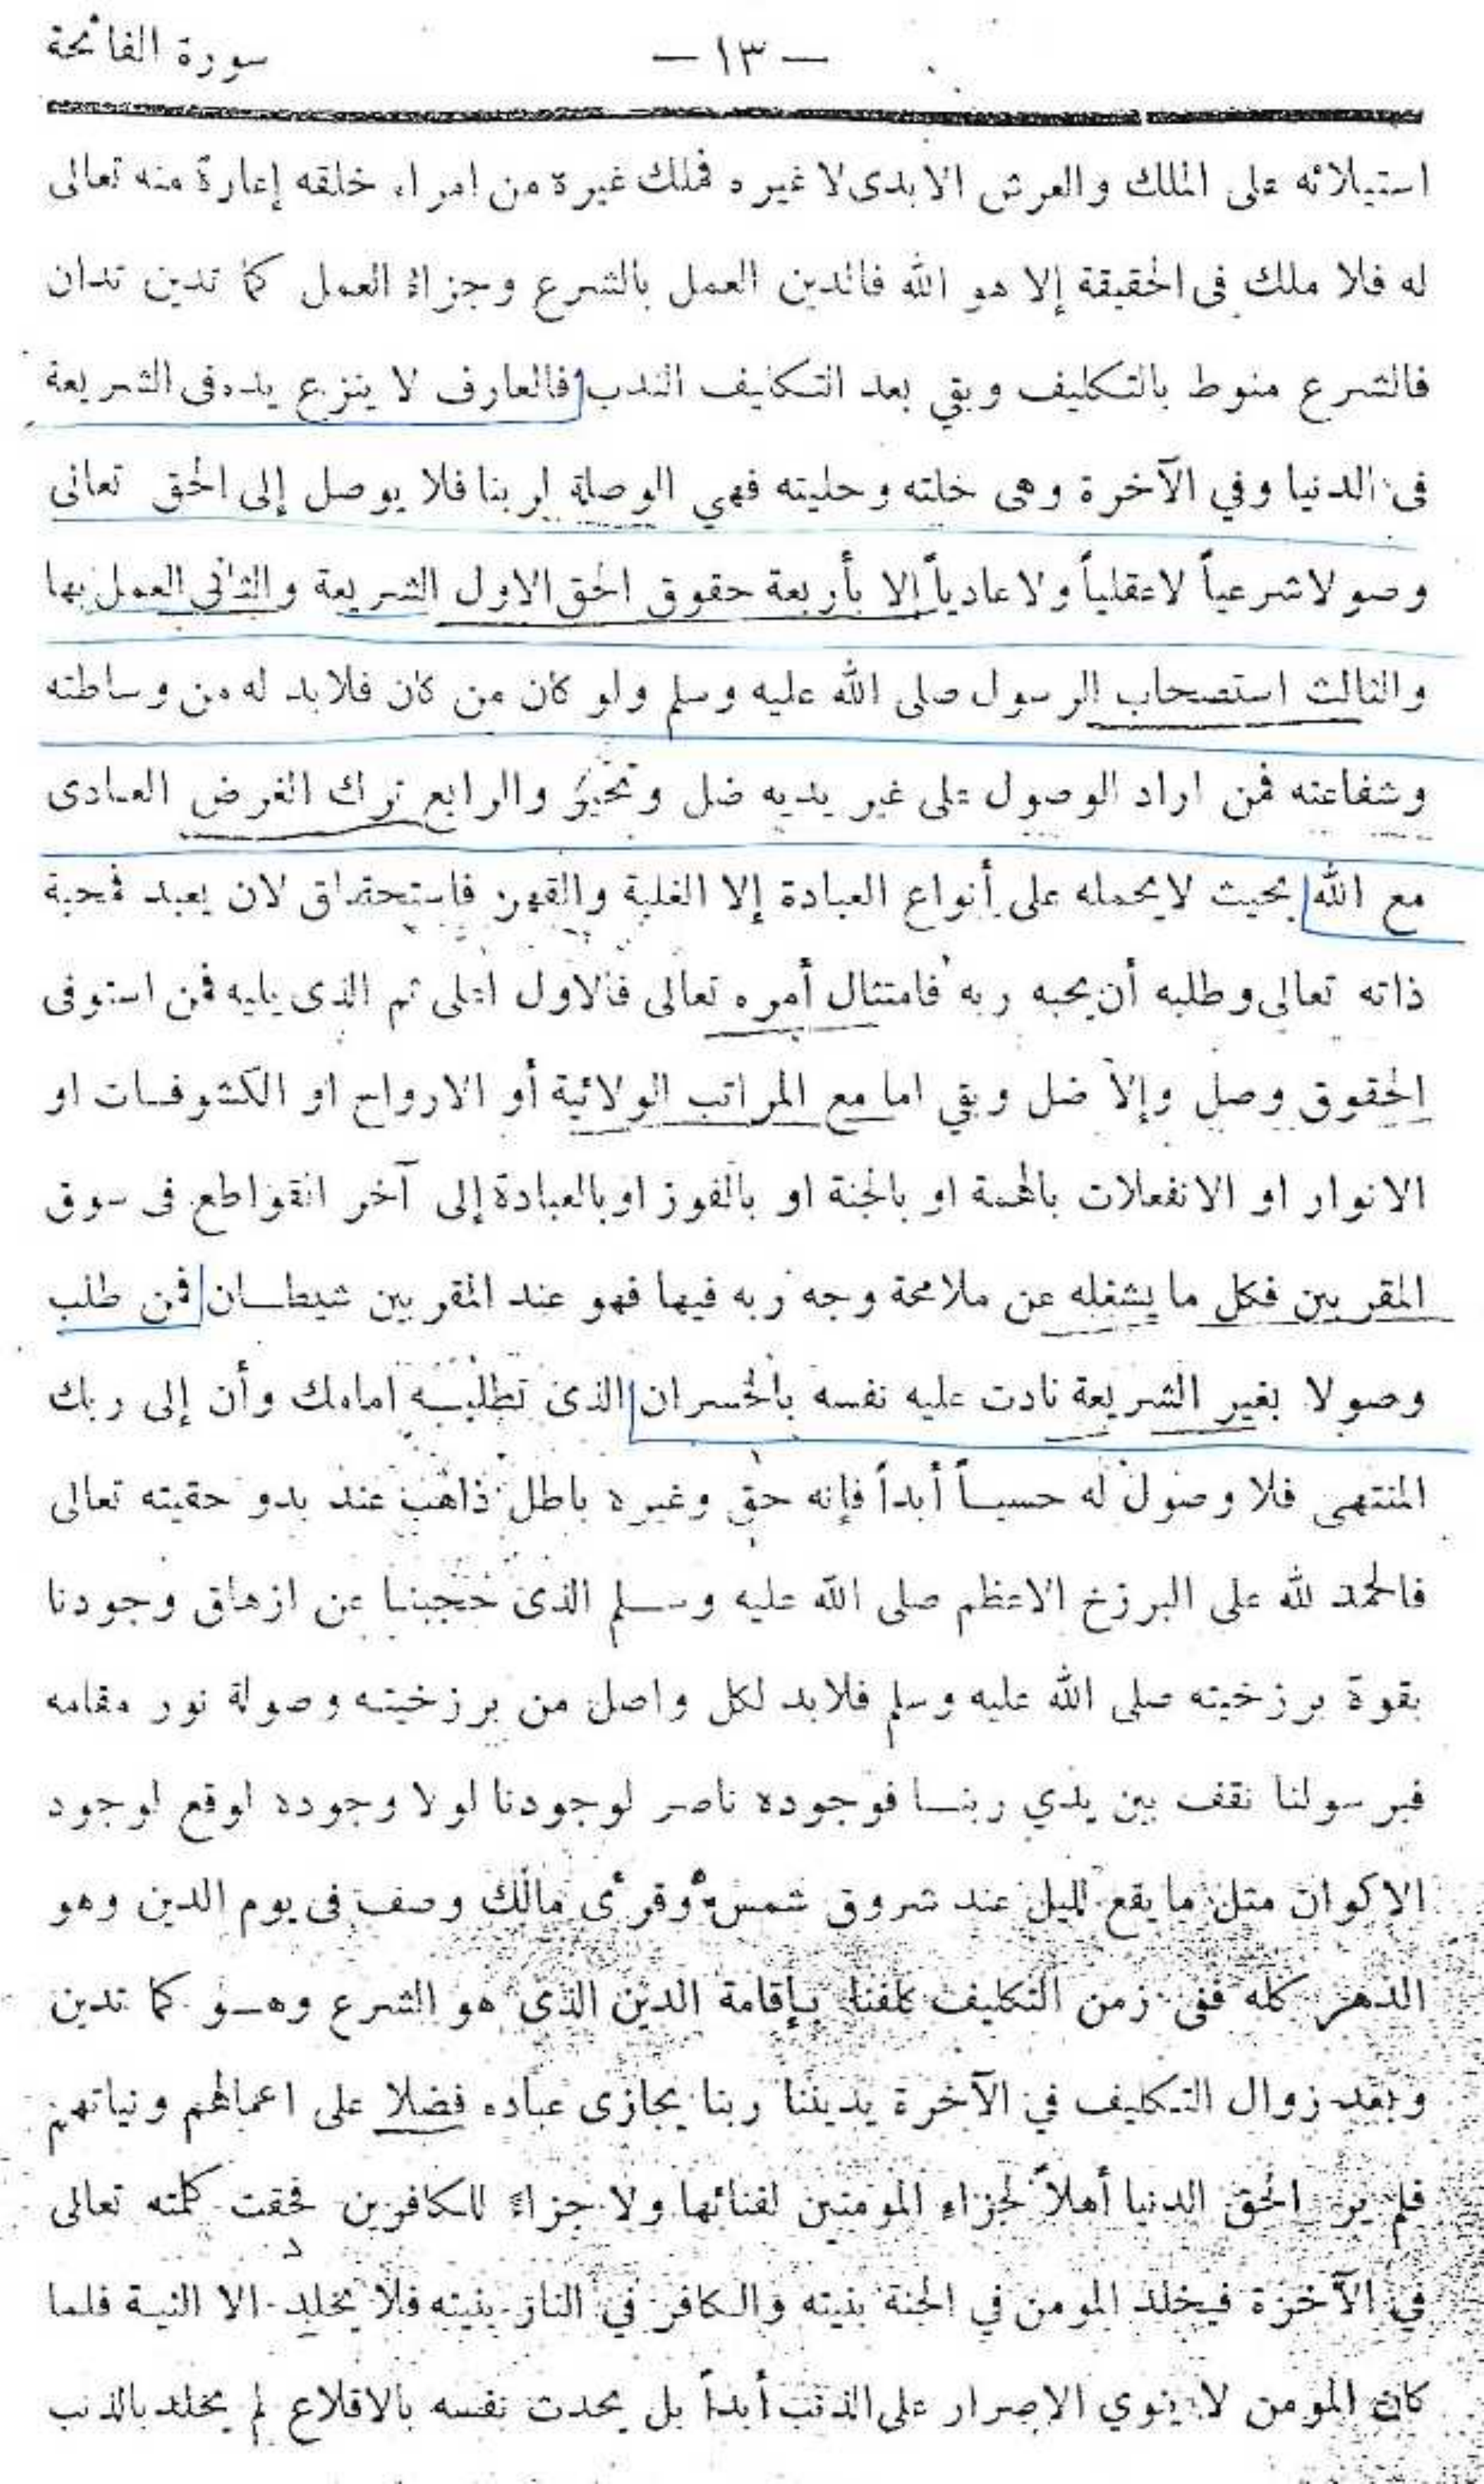 سورة الفاتحة
— ١٣ —
استيلائه على الملك والعرش الابدى لا غيره فملك غيره من امراء خلقه إعارة منه تعالى
له فلا ملك فى الحقيقة إلا هو الله فالدين العمل بالشرع وجزاء العمل كما تدين تدان
فالشرع منوط بالتكليف وبقي بعد التكليف الندب فالعارف لا ينزع يده فى الشريعة
فى الدنيا وفي الآخرة وهى خلته وحليته فهي الوصلة لربنا فلا يوصل إلى الحق تعالى
وصولا شرعياً لا عقلياً ولا عادياً إلا بأربعة حقوق الحق الاول الشريعة والثانى العمل بها
والثالث استصحاب الرسول صلى الله عليه وسلم ولو كان من كان فلا بد له من وساطته
وشفاعته فمن اراد الوصول على غير يديه ضل وتحير والرابع ترك الغرض العادى
مع الله بحيث لا يحمله على أنواع العبادة إلا الغلبة والقهر فاستحقاق لان يعبد فمحبة
ذاته تعالى وطلبه أن يحبه ربه فامتثال أمره تعالى فالاول اعلى ثم الذى يليه فمن استوفى
الحقوق وصل وإلا ضل وبقي اما مع المراتب الولائية أو الارواح او الكشوفات او
الانوار او الانفعلات بالهمة او بالجنة او بالفوز او بالعبادة إلى آخر القواطع فى سوق
المقربين فكل ما يشغله عن ملامحة وجه ربه فيها فهو عند المقربين شيطان فمن طلب
وصولا بغير الشريعة نادت عليه نفسه بالخسران الذى تطلبه امامك وأن إلى ربك
المنتهى فلا وصول له حسياً أبداً فإنه حق وغيره باطل ذاهب عند بدو حقيته تعالى
فالحمد لله على البرزخ الاعظم صلى الله عليه وسلم الذى حجبنا عن ازهاق وجودنا
بقوة برزخيته صلى الله عليه وسلم فلا بد لكل واصل من برزخيته وصولة نور مقامه
فبرسولنا نقف بين يدي ربنا فوجوده ناصر لوجودنا لولا وجوده لوقع لوجود
الاكوان مثل ما يقع لليل عند شروق شمس وقرئ مالك وصف فى يوم الدين وهو
الدهر كله ففى زمن التكليف كلفنا بإقامة الدين الذى هو الشرع وهو كما تدين
وبعد زوال التكليف في الآخرة يديننا ربنا يجازى عباده فضلا على اعمالهم ونياتهم
فلم ير الحق الدنيا أهلاً لجزاء المؤمنين لفنائها ولا جزاء للكافرين فحقت كلمته تعالى
في الآخرة فيخلد المومن في الجنة بنيته والكافر في النار بنيته فلا يخلد الا النية فلما
كان المومن لا ينوي الإصرار على الذنب أبداً بل يحدث نفسه بالاقلاع لم يخلد بالذنب